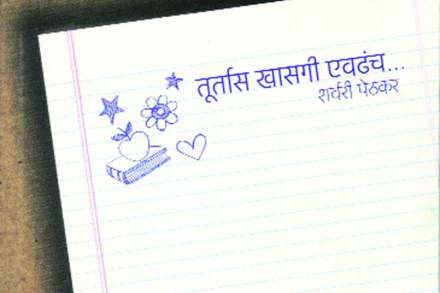 तूर्तास खासगी एवढंच...
शर्वरी पेठकर